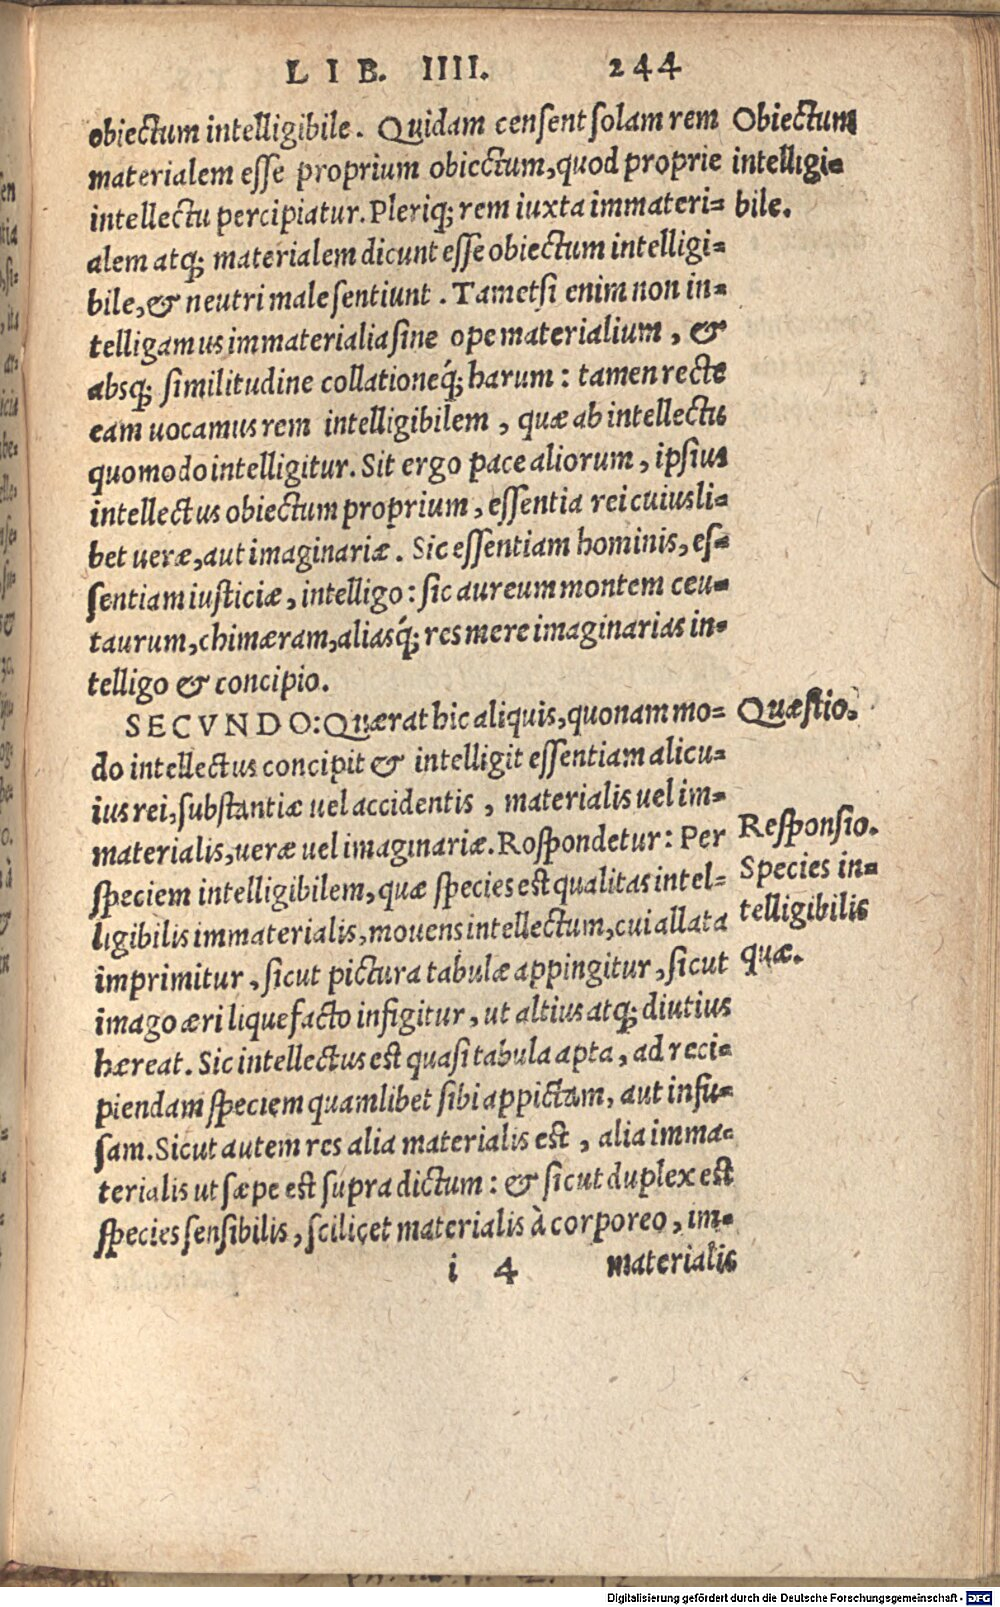 LIB. IIII. 244
obiectum intelligibile. Quidam censent solam rem
materialem esse proprium obiectum, quod proprie
intellectu percipiatur. Pleriq; rem iuxta immateri=
alem atq; materialem dicunt esse obiectum intelligi=
bile, & neutri male sentiunt. Tametsi enim non in=
telligamus immaterialia sine ope materialium, &
absq; similitudine collationeq́; harum: tamen recte
eam uocamus rem intelligibilem, quæ ab intellectu
quomodo intelligitur. Sit ergo pace aliorum, ipsius
intellectus obiectum proprium, essentia rei cuiusli=
bet ueræ, aut imaginariæ. Sic essentiam hominis, es=
sentiam iusticiæ, intelligo: sic aureum montem ceu=
taurum, chimæram, aliasq́; res mere imaginarias in=
telligo & concipio.
SECVNDO: Quærat hic aliquis, quonam mo=
do intellectus concipit & intelligit essentiam alicu=
ius rei, substantiæ uel accidentis, materialis uel im=
materialis, ueræ uel imaginariæ. Rospondetur: Per
speciem intelligibilem, quæ species est qualitas intel=
ligibilis immaterialis, mouens intellectum, cui allata
imprimitur, sicut pictura tabulæ appingitur, sicut
imago æri liquefacto infigitur, ut altius atq; diutius
hæreat. Sic intellectus est quasi tabula apta, ad reci=
piendam speciem quamlibet sibi appictam, aut infu=
sam. Sicut autem res alia materialis est, alia imma=
terialis ut sæpe est supra dictum: & sicut duplex est
species sensibilis, scilicet materialis à corporeo, im=
i 4 materialis
Obiectum
intelligi=
bile.
Quæstio.
Responsio.
Species in=
telligibilis
quæ.
Digitalisierung gefördert durch die Deutsche Forschungsgemeinschaft - DFG